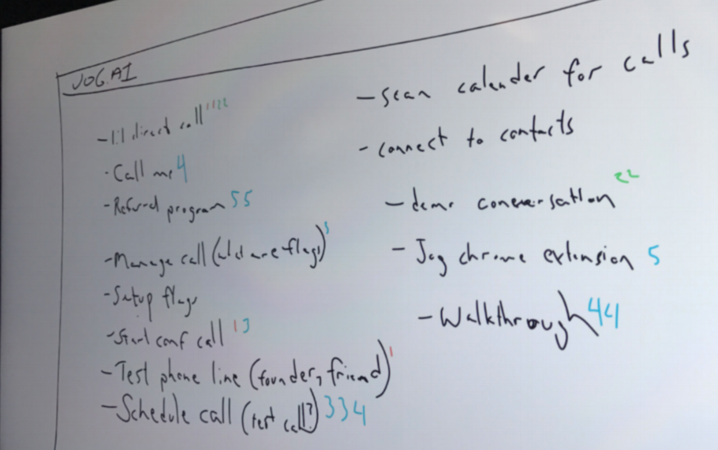 JOG.AI
- 1:1 direct call 1122
- Call me 4
- Referral program 55
- Manage call (add one flags) 5
- Setup flags
- Start conf call 13
- Test phone line (founder, friend) 1
- Schedule call (test call?) 334
- scan calender for calls
- connect to contacts
- demo conversation 22
- Jog chrome extension 5
- Walkthrough 44